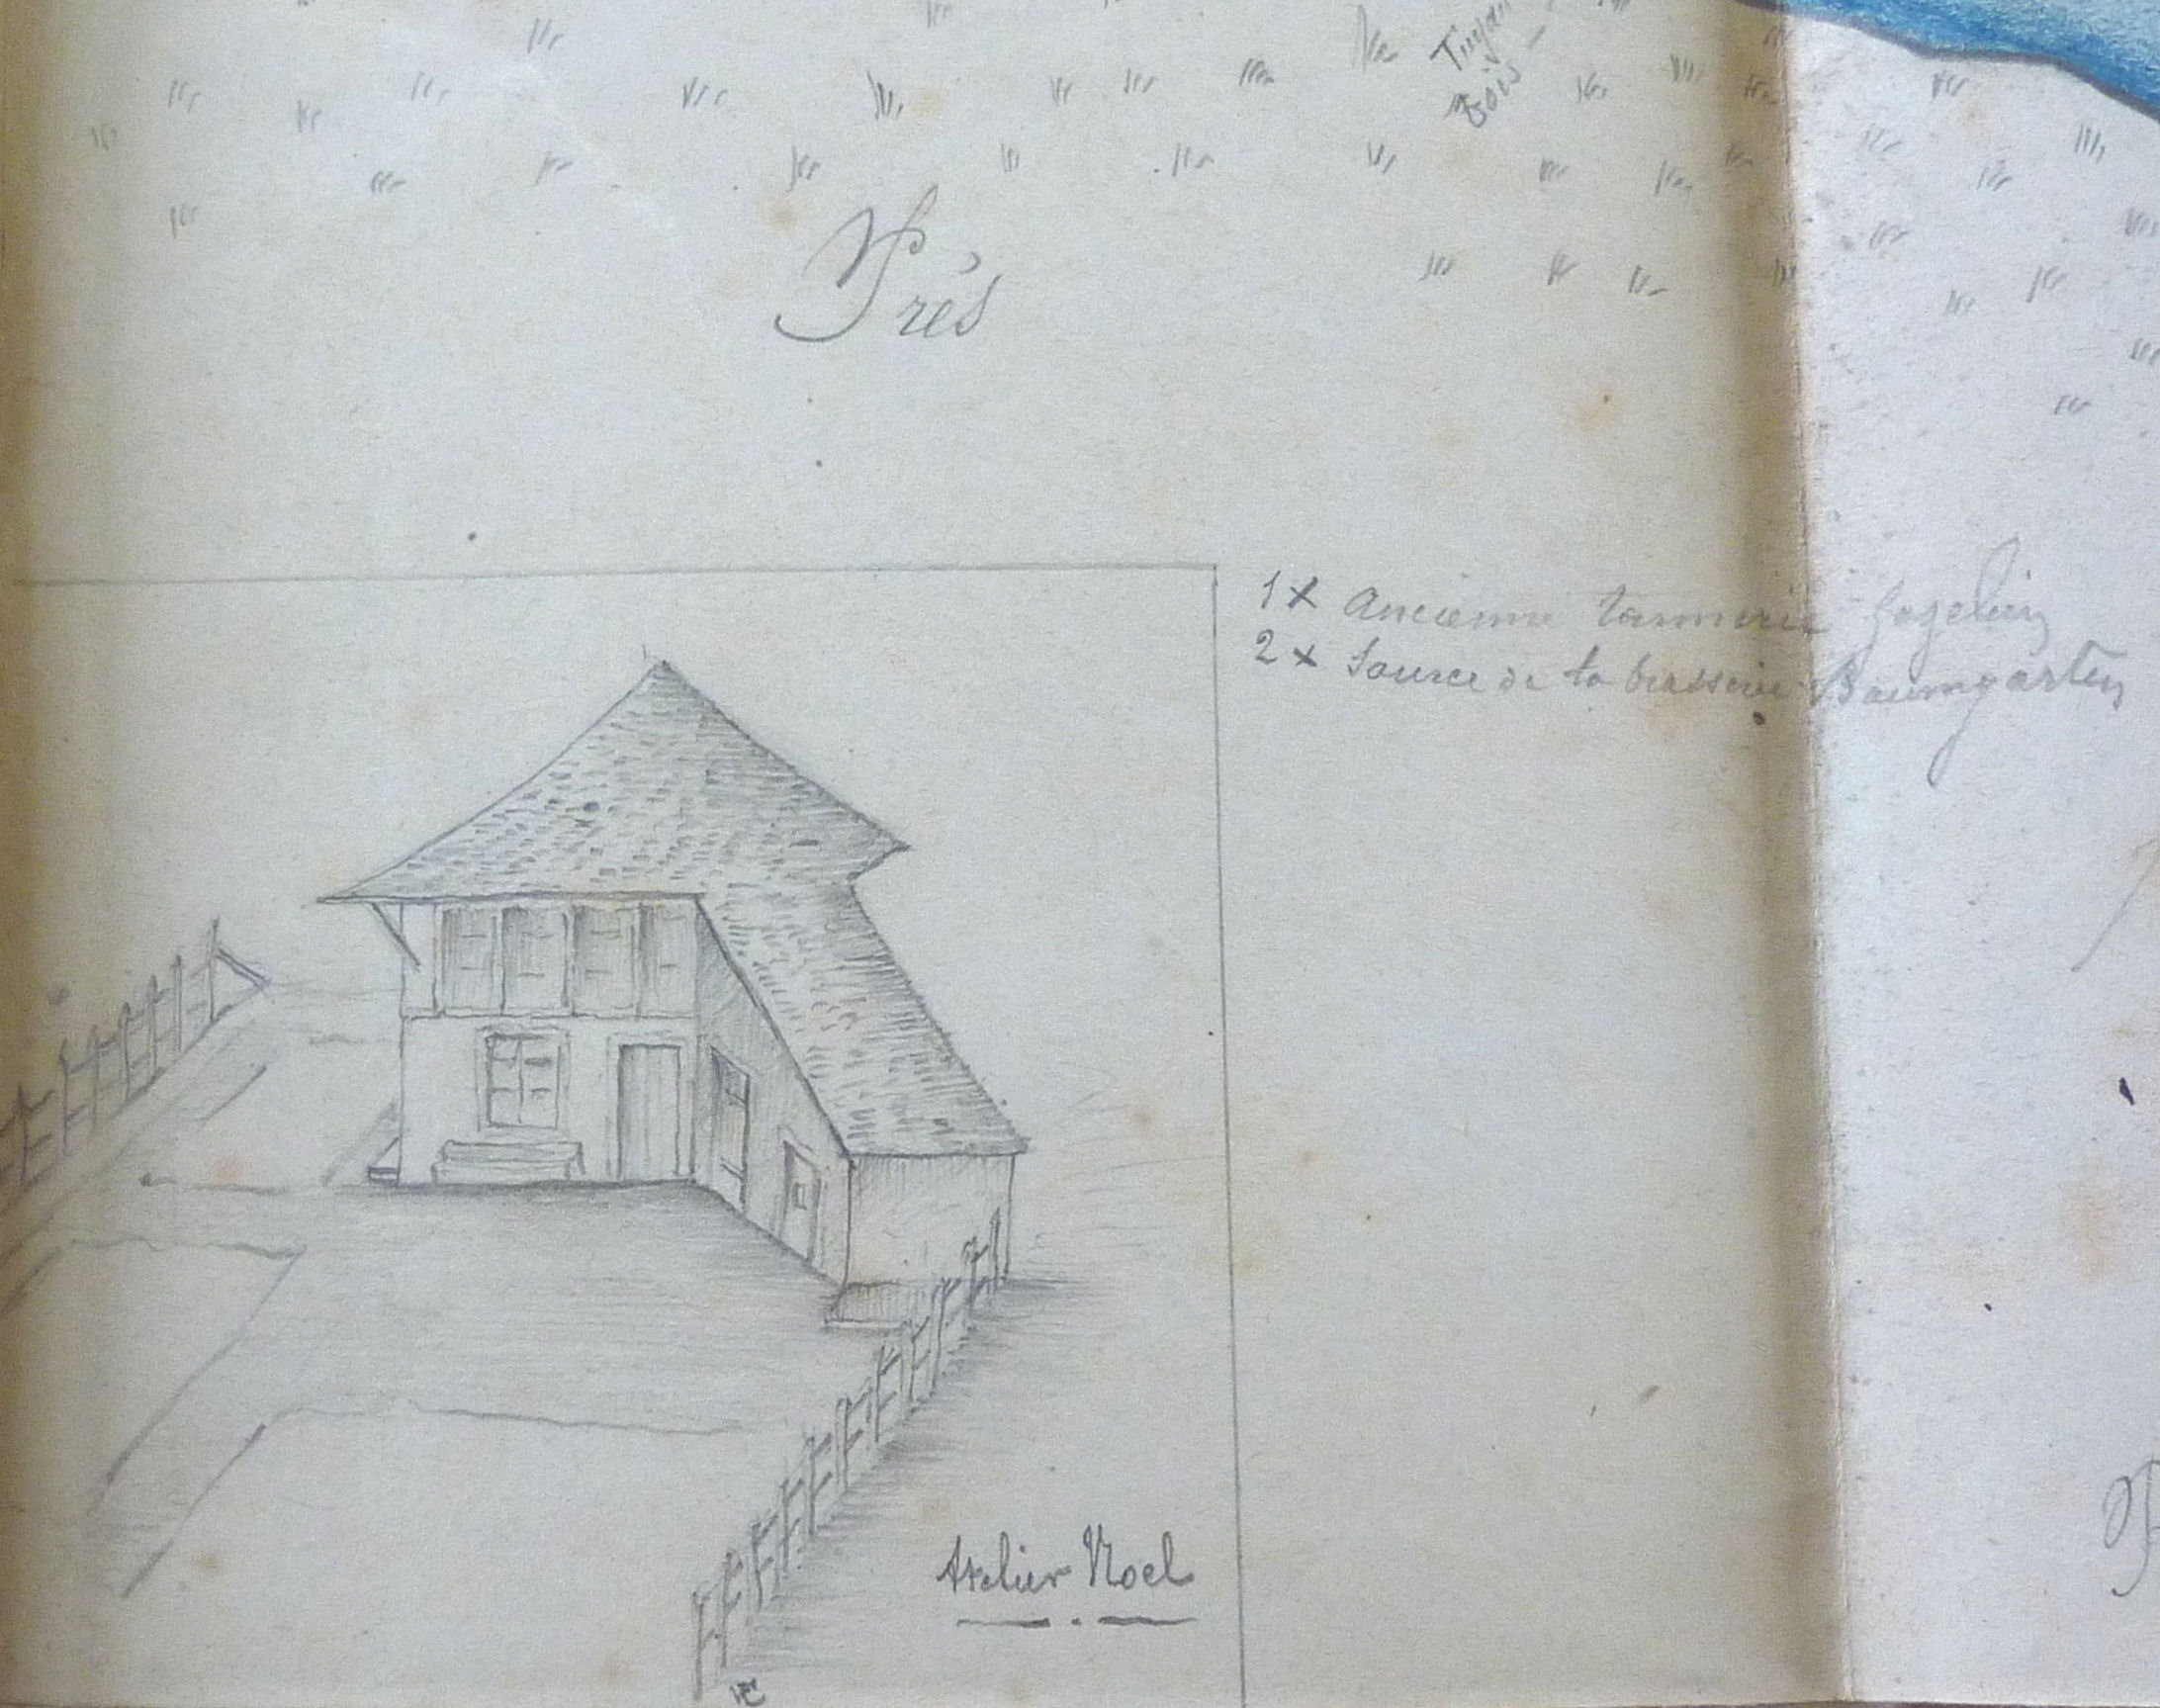 Tuyau
Bois
Prés
1 x Ancienne tannerie
2 x Source de la brasserie Baumgarten
Atelier Noel